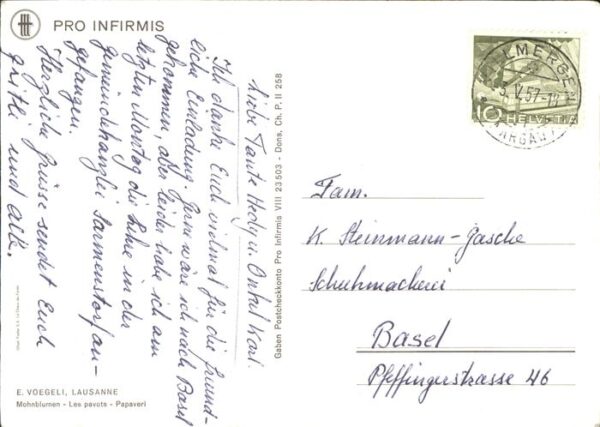 PRO INFIRMIS
Liebe Tante Hedy u. Onkel Karl.
Ich danke Euch vielmal für die freund-
liche Einladung. Gerne wäre ich nach Basel
gekommen, aber leider habe ich am
letzten Montag die Lehre in der
Gemeindekanzlei Sarmenstorf an-
gefangen.
Herzliche Grüsse sendet Euch
Gritli und alle.
Gaben Postcheckkonto Pro Infirmis VIII 23 503 - Dons, Ch. P. II 258
E. VOEGELI, LAUSANNE
Mohnblumen - Les pavots - Papaveri
VILLMERGEN
3. V. 57
(ARGAU)
10 HELVETIA
Fam.
K. Steinmann-Gasche
Schuhmacherei
Basel
Pfeffingerstrasse 46